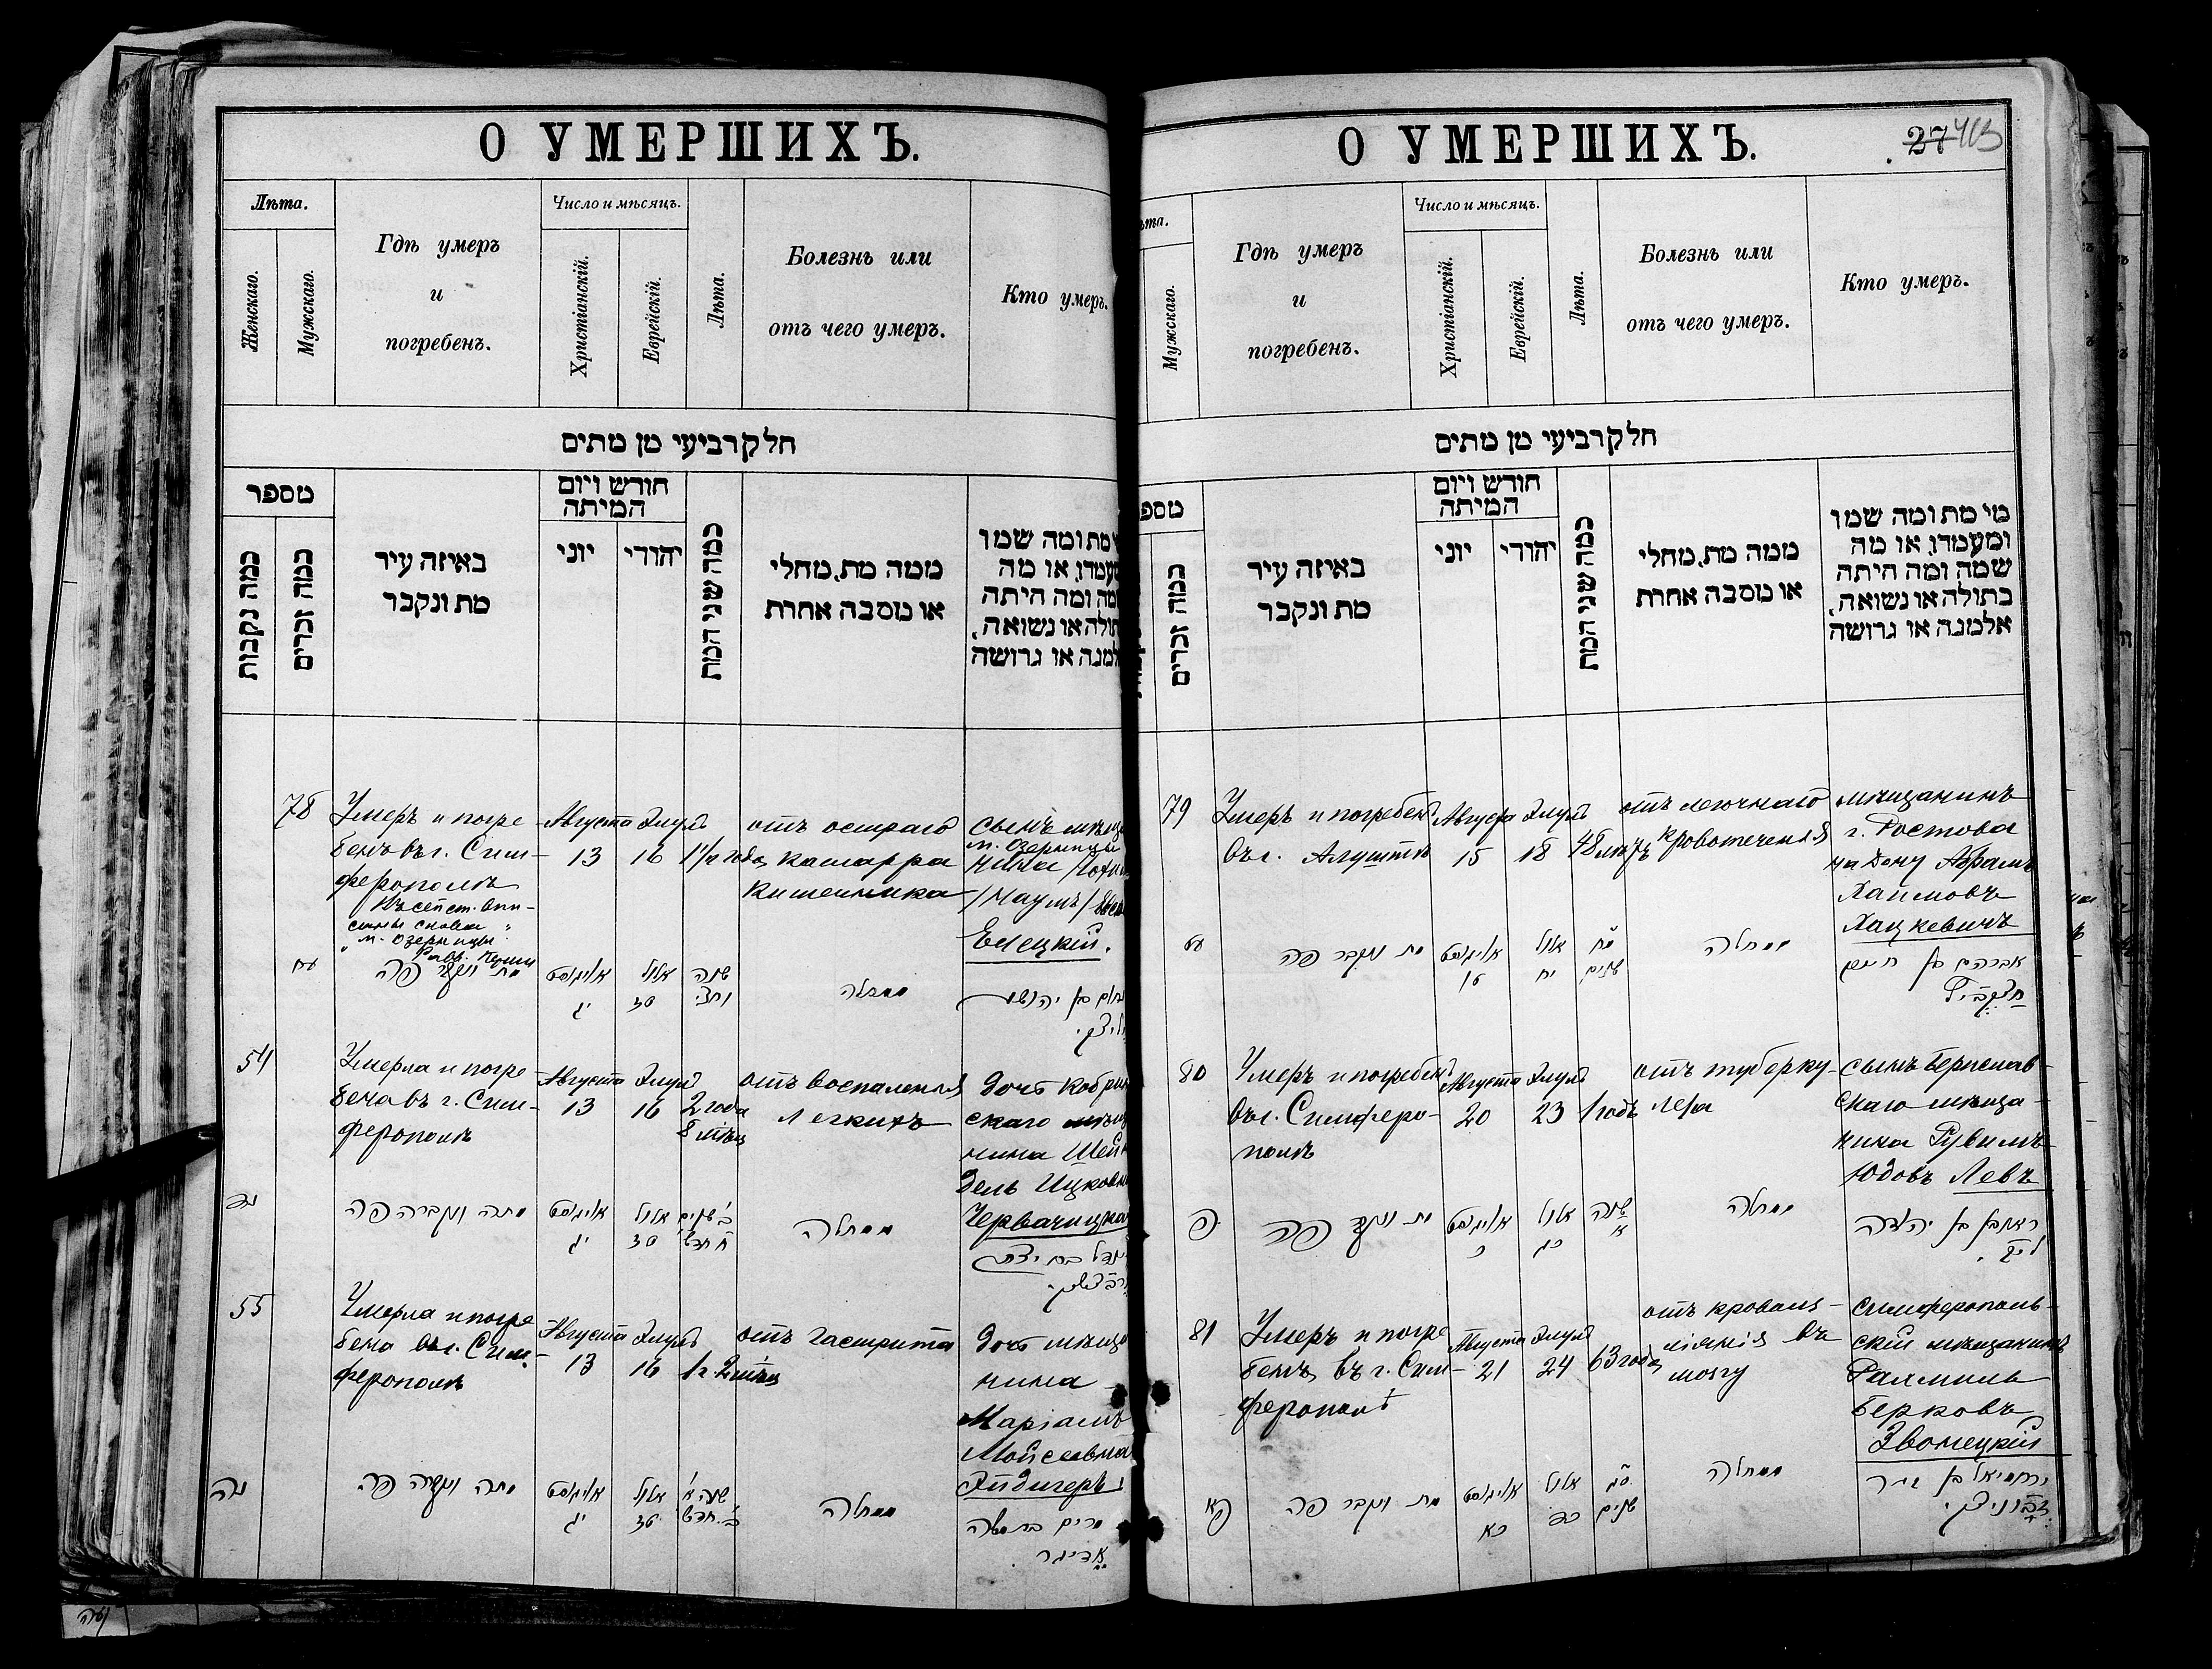 О УМЕРШИХЪ.
Лѣта.
Женскаго.
Мужскаго.
Гдѣ умеръ
и
погребенъ.
Число и мѣсяцъ.
Христіанскій.
Еврейскій.
Лѣта.
Болезнь или
отъ чего умеръ.
Кто умеръ.
חלק רביעי מן מתים
מספר
כמה נקבות
כמה זכרים
באיזה עיר
מת ונקבר
חודש ויום
המיתה
יוני
יהודי
כמה שני המת
ממה מת. מחלי
או מסבה אחרת
מת ומה שמו
או מה
ומה היתה
או נשואה,
או גרושה
78
Умеръ и погре-
бенъ въ г. Сим-
ферополѣ
м. Озерницы
Августа
13
Элулъ
16
1½ года
отъ остраго
катарра
кишечника
сынъ
м. Озерницы
/Наумъ/
Елецкій.
עח
מת ונקבר פה
אויגוסט
יג
אלול
טז
שנה
וחצי
ממחלה
נחום בן יהושע
54
Умерла и погре-
бена въ г. Сим-
ферополѣ
Августа
13
Элулъ
16
2 года
8 мѣц
отъ воспаленія
легкихъ
дочь
скаго
нина
дель Ицковна
נד
מתה ונקברה פה
אויגוסט
יג
אלול
טז
ב' שנים
ח' חדש'
ממחלה
בת יצחק
55
Умерла и погре
бена въ г. Сим-
ферополѣ
Августа
13
Элулъ
16
1 г. 2 мѣц
отъ гастрита
дочь мѣща
нина
Маріамъ
Мойсеевна
Эйдигеръ
נה
מתה ונקברה פה
אויגוסט
יג
אלול
טז
שנה א'
ב' חדש'
ממחלה
מרים בת משה
אידיגר
О УМЕРШИХЪ.
27
Мужскаго.
Гдѣ умеръ
и
погребенъ.
Число и мѣсяцъ.
Христіанскій.
Еврейскій.
Лѣта.
Болезнь или
отъ чего умеръ.
Кто умеръ.
חלק רביעי מן מתים
כמה זכרים
באיזה עיר
מת ונקבר
חודש ויום
המיתה
יוני
יהודי
כמה שני המת
ממה מת. מחלי
או מסבה אחרת
מי מת ומה שמו
ומעמדו, או מה
שמה ומה היתה
בתולה או נשואה,
אלמנה או גרושה
79
Умеръ и погребенъ
въ г. Алуштѣ
Августа
15
Элулъ
18
48 лѣтъ
отъ легочнаго
кровотеченія
мѣщанинъ
г. Ростова
на Дону Абрамъ
Хаимовъ
Хацкевичъ
עט
מת ונקבר פה
אויגוסט
טו
אלול
יח
מח
שנים
ממחלה
אברהם בן חיים
80
Умеръ и погребенъ
въ г. Симферо-
полѣ
Августа
20
Элулъ
23
1 годъ
отъ туберку-
леза
сынъ Берислав-
скаго мѣща-
нина Рувимъ
Юдовъ Левъ
פ
מת ונקבר פה
אויגוסט
כ
אלול
כג
שנה
א
ממחלה
ראובן בן יהודה
81
Умеръ и погре
бенъ въ г. Сим-
ферополѣ
Августа
21
Элулъ
24
63 года
отъ кровоиз-
ліянія въ
мозгу
Симферополь-
скій мѣщанинъ
Рахмиль
Берковъ
Звонецкій
פא
מת ונקבר פה
אויגוסט
כא
אלול
כד
סג
שנים
ממחלה